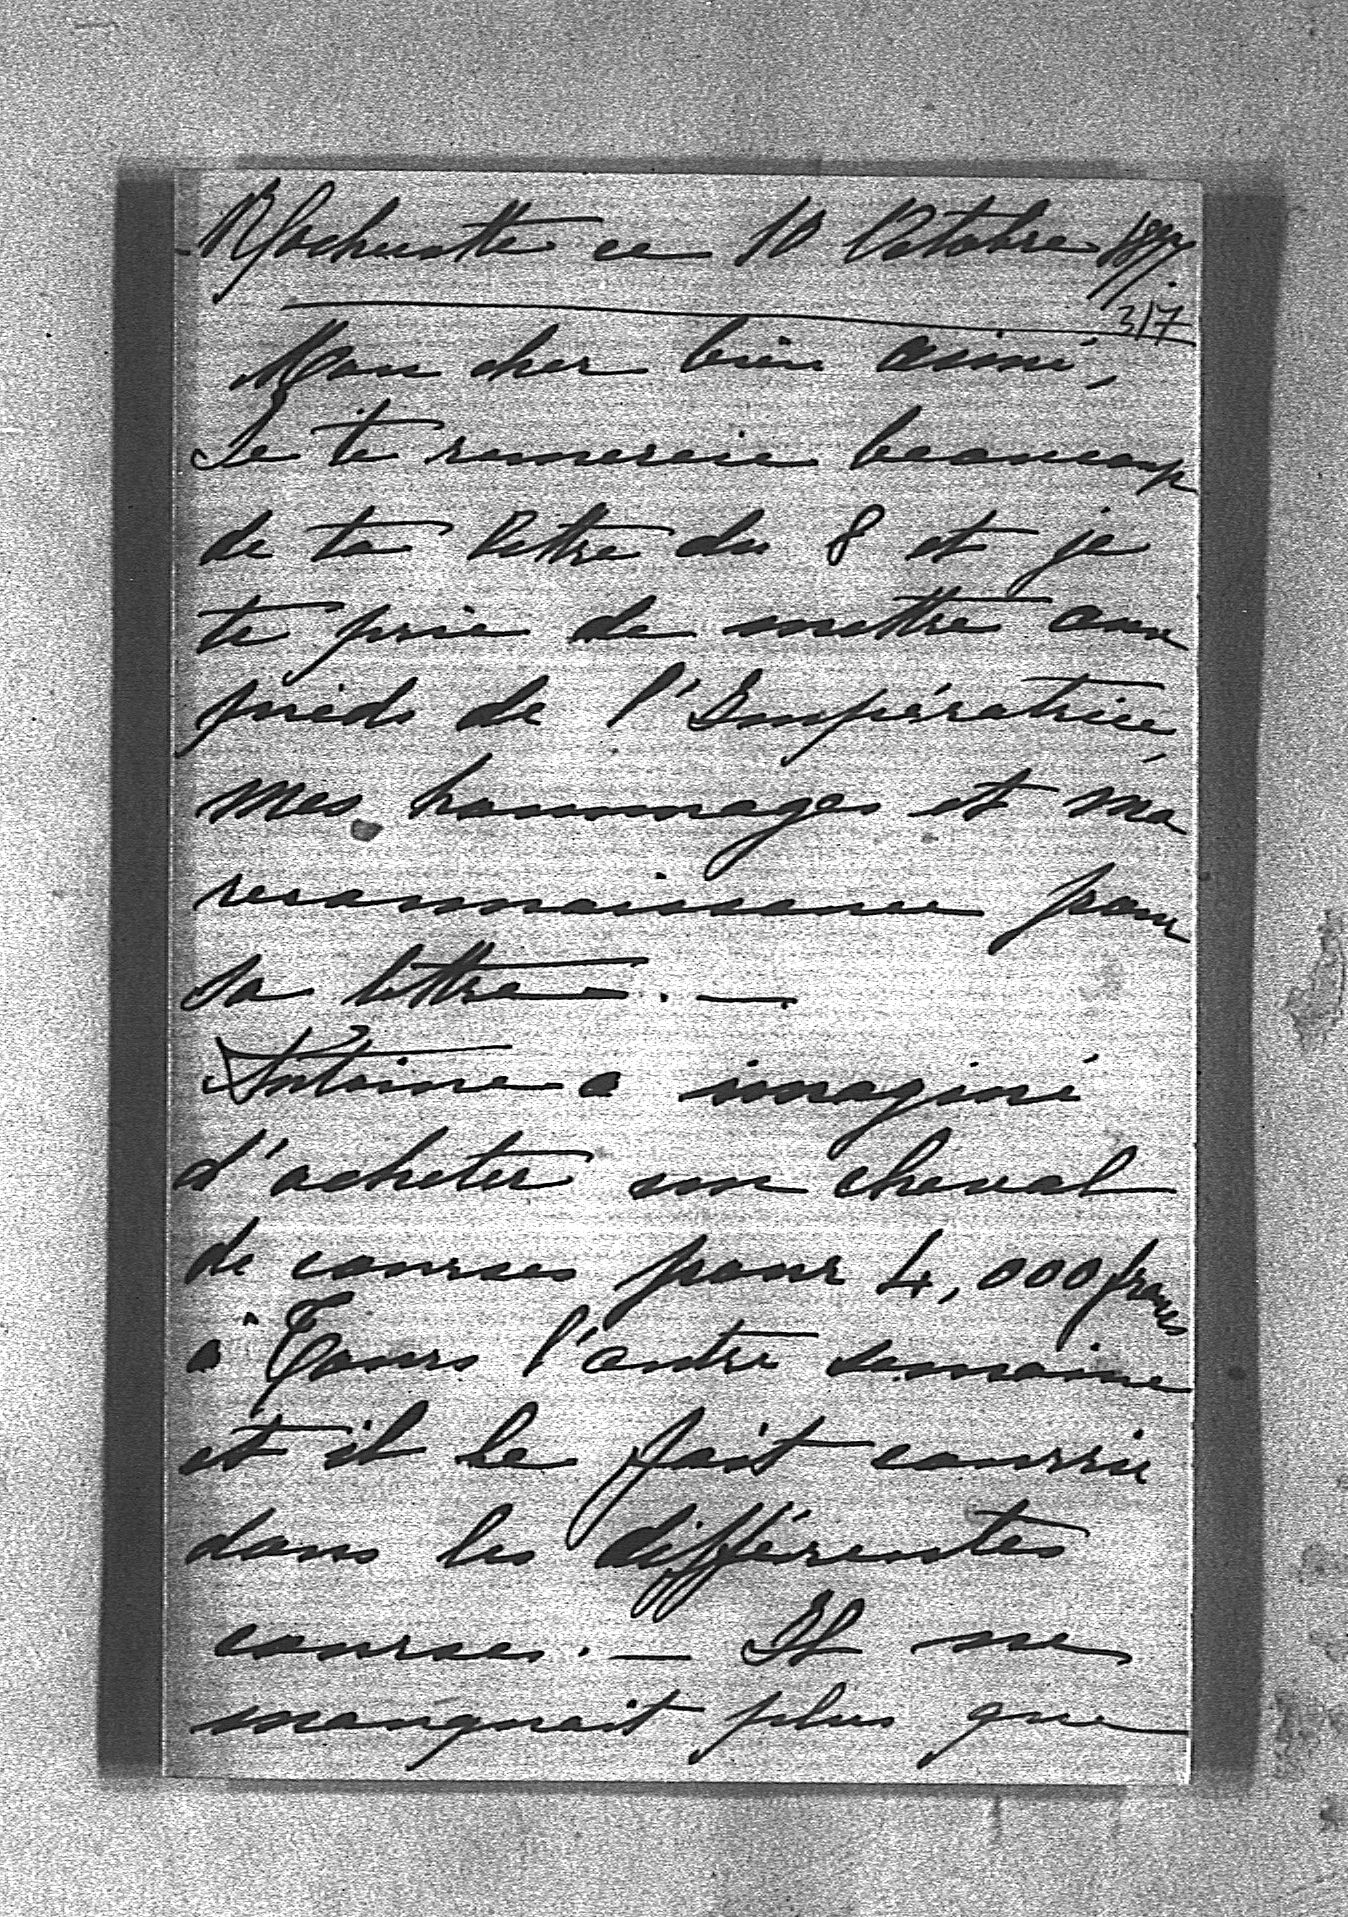 Rochecotte ce 10 Octobre 1897.
317
Mon cher bien aimé,
Je te remercie beaucoup
de ta lettre du 8 et je
te prie de mettre aux
pieds de l'Impératrice,
mes hommages et ma
reconnaissance pour
sa lettre. —.
Antoine a imaginé
d'acheter un cheval
de courses pour 4,000 francs
à Tours l'autre semaine
et il le fait courrir
dans les différentes
courses. — Il ne
manquait plus que